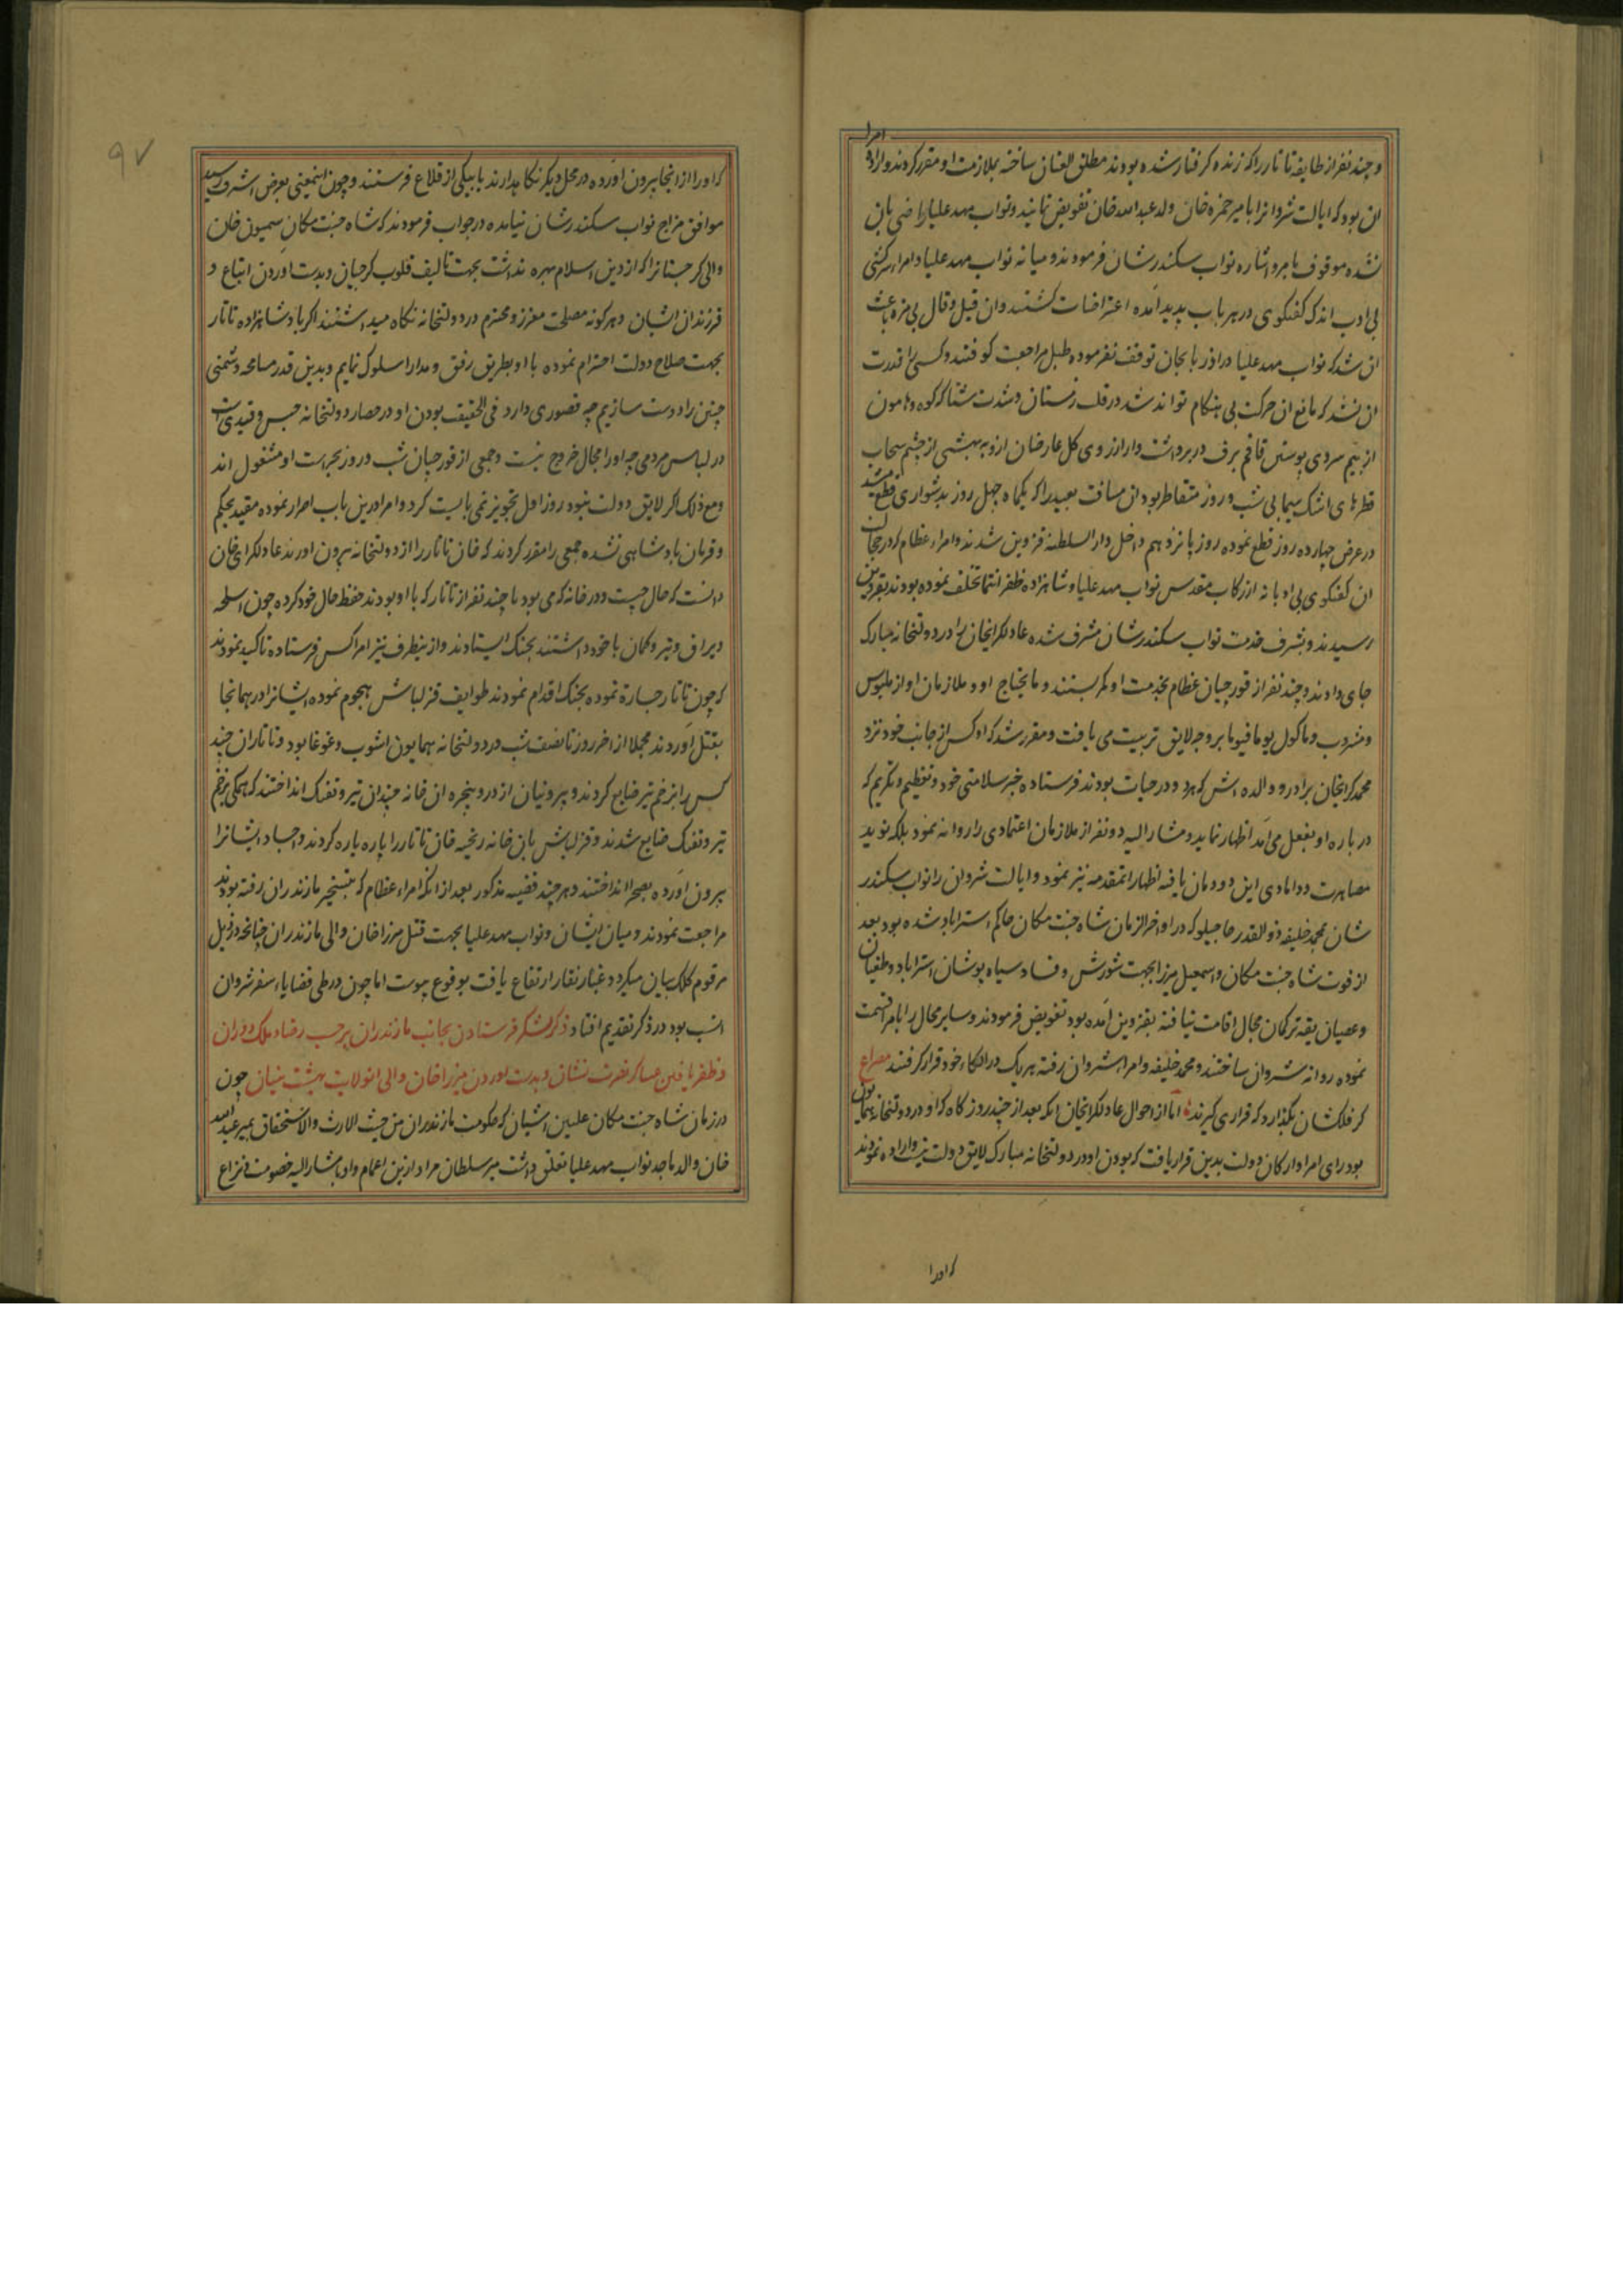 و چند نفر از طایفه تاتار را که زنده گرفتار شده بودند مطلق العنان ساخته بملازمت او مقرر کردند و اراده امرا
ان بود که ایالت شروانرا بامیر حمزه خان ولد عبدالله خان تفویض نمایند و نواب مهد علیا راضی بان
نشده موقوف بامر و اشاره نواب سکندرشان فرمودند و میانه نواب مهد علیا و امراء سرکشی
بی ادب اندک گفتگوی در هر باب پدید آمده اعتراضات گشتند و ان قیل و قال بی مزه باعث
ان شد که نواب مهد علیا در اذربایجان توقف نفرموده طبل مراجعت کوفتند و کسی را قدرت
ان نشد که مانع ان حرکت بی هنگام تواند شد در قلب زمستان و شدت شتا که کوه و هامون
از بیم سردی پوستین قاقم برف در بر داشت و از روی کل عارضان از چشم سحاب
قطرهای اشک سیمابی شب و روز متقاطر بود ان مسافت بعید را که یکماه چهل روز بدشواری قطع میشد
در عرض چهارده روز قطع نموده روز پانزدهم داخل دار السلطنه قزوین شدند و امراء عظام که در حین
ان گفتگوی بی ادبانه از رکاب مقدس نواب مهد علیا و شاهزاده ظفر انتما تخلف نموده بودند بقزوین
رسیدند و بشرف خدمت نواب سکندرشان مشرف شده عادلکرایخان را در دولتخانه مبارک
جای دادند و چند نفر از قورچیان عظام بخدمت او کمر بستند و مایحتاج او و ملازمان او از ملبوس
و مشروب و ماکول یوما فیوما بر وجه لایق تربیت می یافت و مقرر شد که او کس از جانب خود نزد
محمدکرایخان برادر و والده اش که هر دو در حیات بودند فرستاده خبر سلامتی خود و تعظیم و تکریم که
درباره او بفعل می آمد اظهار نماید و مشار الیه دو نفر از ملازمان اعتمادی را روانه نمود بلکه نوید
مصاهرت و دامادی این دودمان یافته اظهار انمقدمه نیز نمود و ایالت شروان را نواب سکندر
شان محمد خلیفه ذوالقدر حاجیلر که در اواخر الزمان شاه جنت مکان حاکم استراباد شده بود بعد
از فوت شاه جنت مکان و اسمعیل میرزا بجهت شورش و فساد سیاه پوشان استراباد و طغیان
و عصیان یقه ترکمان مجال اقامت نیافته بقزوین آمده بود تفویض فرمودند و سایر محال را بامرا قسمت
نموده روانه شروان ساختند و محمد خلیفه و امراء شروان رفته هر یک در الکاء خود قرار گرفتند مصراع
گر فلکشان بگذارد که قراری گیرند اما از احوال عادلکرایخان انکه بعد از چند روز گاه که او در دولتخانه همایون
بود رای امرا و ارکان دولت بدین قرار یافت که بودن او در دولتخانه مبارک لایق دولت نیست و اراده نمودند
که او را
که او را از انجا بیرون اورده در محل دیگر نگاه بدارند یا بیکی از قلاع فرستند و چون اینمعنی بعرض اشرف رسید
موافق مزاج نواب سکندرشان نیامده در جواب فرمودند که شاه جنت مکان سمیون خان
والی گرجستانرا که از دین اسلام بهره نداشت بجهت تالیف قلوب گرجیان و بدست اوردن اتباع و
فرزندان ایشان و هرگونه مصلحت معزز و محترم در دولتخانه نگاه میداشتند اگر با پادشاهزاده تاتار
بجهت صلاح دولت احترام نموده با او بطریق رفق و مدارا سلوک نمایم و بدین قدر مسامحه دشمنی
چنین را دوست سازیم چه قصوری دارد فی الحقیقت بودن او در حصار دولتخانه حبس و قیدیست
در لباس مردمی چه او را مجال خروج نیست و جمعی از قورچیان شب و روز بحراست او مشغول اند
و مع ذلک اگر لایق دولت نبود روز اول تجویز نمی بایست کرد و امرا درین باب اصرار نموده مقید بحکم
و فرمان پادشاهی نشده جمعی را مقرر کردند که خان تاتار را از دولتخانه بیرون اورند عادلکرایخان
دانست که حال چیست و در خانه که می بود با چند نفر از تاتار که با او بودند حفظ حال خود کرده چون اسلحه
و یراق و تیر و کمان با خود داشتند بجنگ ایستادند و از نیطرف نیز امرا کس فرستاده تاکید نمودند
که چون تاتار جسارة نموده بجنگ اقدام نمودند طوایف قزلباش هجوم نموده ایشانرا در همانجا
بقتل آوردند مجملا از اخر روز تا نصف شب در دولتخانه همایون اشوب و غوغا بود و تاتاران چند
کس را بزخم تیر ضایع کردند و بیرونیان از در و پنجره ان خانه چندان تیر و تفنک انداختند که همگی بزخم
تیر و تفنک ضایع شدند و قزلباش بان خانه ریخته خان تاتار را پاره پاره کردند و اجساد ایشانرا
بیرون آورده بصحرا انداختند و هر چند قضیه مذکور بعد از انکه امراء عظام که بتسخیر مازندران رفته بودند
مراجعت نمودند و میان ایشان و نواب مهد علیا بجهت قتل میرزا خان والی مازندران چنانچه در ذیل
مرقوم کلک بیان میگردد غبار نقار ارتفاع یافت بوقوع پیوست اما چون در طی قضایاء سفر شروان
انسب بود در ذکر تقدیم افتاد ذکر لشکر فرستادن بجانب مازندران بر حسب رضاء ملک دوران
و ظفر یافتن عساکر نصرت نشان و بدست اوردن میرزا خان والی انولایت بهشت بنیان چون
در زمان شاه جنت مکان علیین اشیان که حکومت مازندران من حیث الارث والاستحقاق بمیر عبدالله
خان والد ماجد نواب مهد علیا تعلق داشت میر سلطان مراد از بنی اعمام او با مشار الیه خصومت و نزاع
۹۷